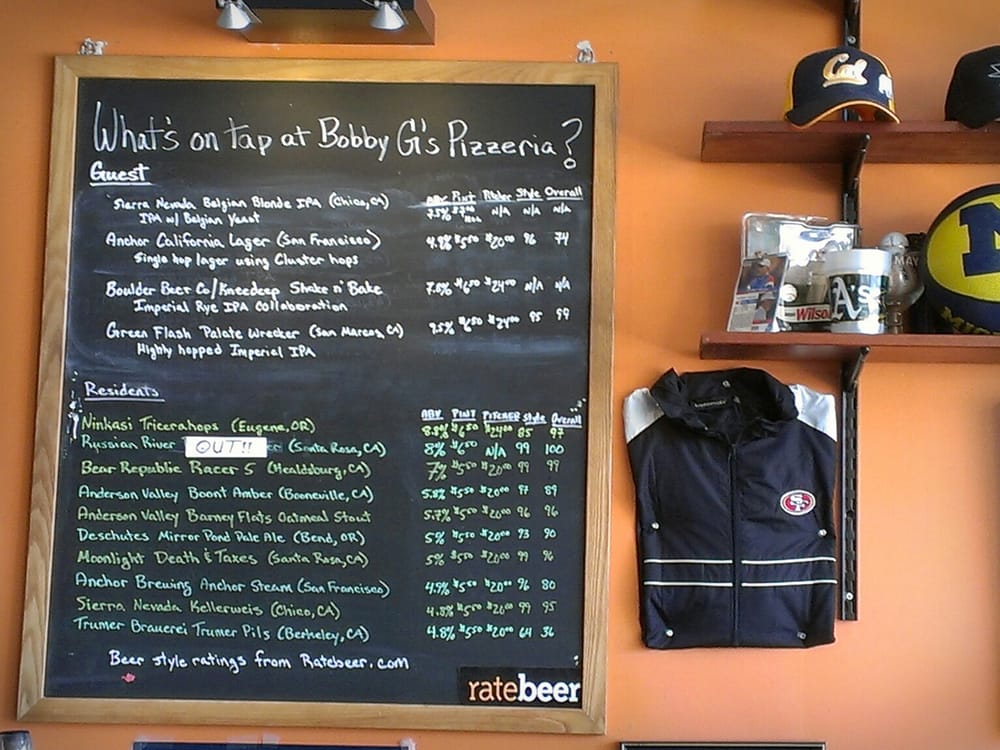 What's on tap at Bobby G's Pizzeria?
Guest
ABV Pint Pitcher Style Overall
Sierra Nevada Belgian Blonde IPA (Chico, CA) 7.5% N/A N/A N/A
IPA w/ Belgian Yeast
Anchor California Lager (San Francisco) 4.9% $5.50 $20.00 96 74
Single hop lager using Cluster hops
Boulder Beer Co/Kneedeep Shake n' Bake 7.8% $6.50 $24.00 N/A N/A
Imperial Rye IPA Collaboration
Green Flash Palate Wrecker (San Marcos, CA) 9.5% $6.50 $24.00 95 99
Highly hopped Imperial IPA
Residents
ABV Pint Pitcher Style Overall
Ninkasi Tricerahops (Eugene, OR) 8.8% $6.50 $24.00 85 97
Russian River OUT!! er (Santa Rosa, CA) 8% $6.50 N/A 99 100
Bear Republic Racer 5 (Healdsburg, CA) 7% $5.50 $20.00 99 99
Anderson Valley Boont Amber (Booneville, CA) 5.8% $5.50 $20.00 97 89
Anderson Valley Barney Flats Oatmeal Stout 5.7% $5.50 $20.00 96 96
Deschutes Mirror Pond Pale Ale (Bend, OR) 5% $5.50 $20.00 93 90
Moonlight Death & Taxes (Santa Rosa, CA) 5% $5.50 $20.00 99 96
Anchor Brewing Anchor Steam (San Francisco) 4.9% $5.50 $20.00 96 80
Sierra Nevada Kellerweis (Chico, CA) 4.8% $5.50 $20.00 99 95
Trumer Brauerei Trumer Pils (Berkeley, CA) 4.8% $5.50 $20.00 64 36
Beer style ratings from Ratebeer.com
ratebeer
Cal
M
MAY
A's
Wilso
SF